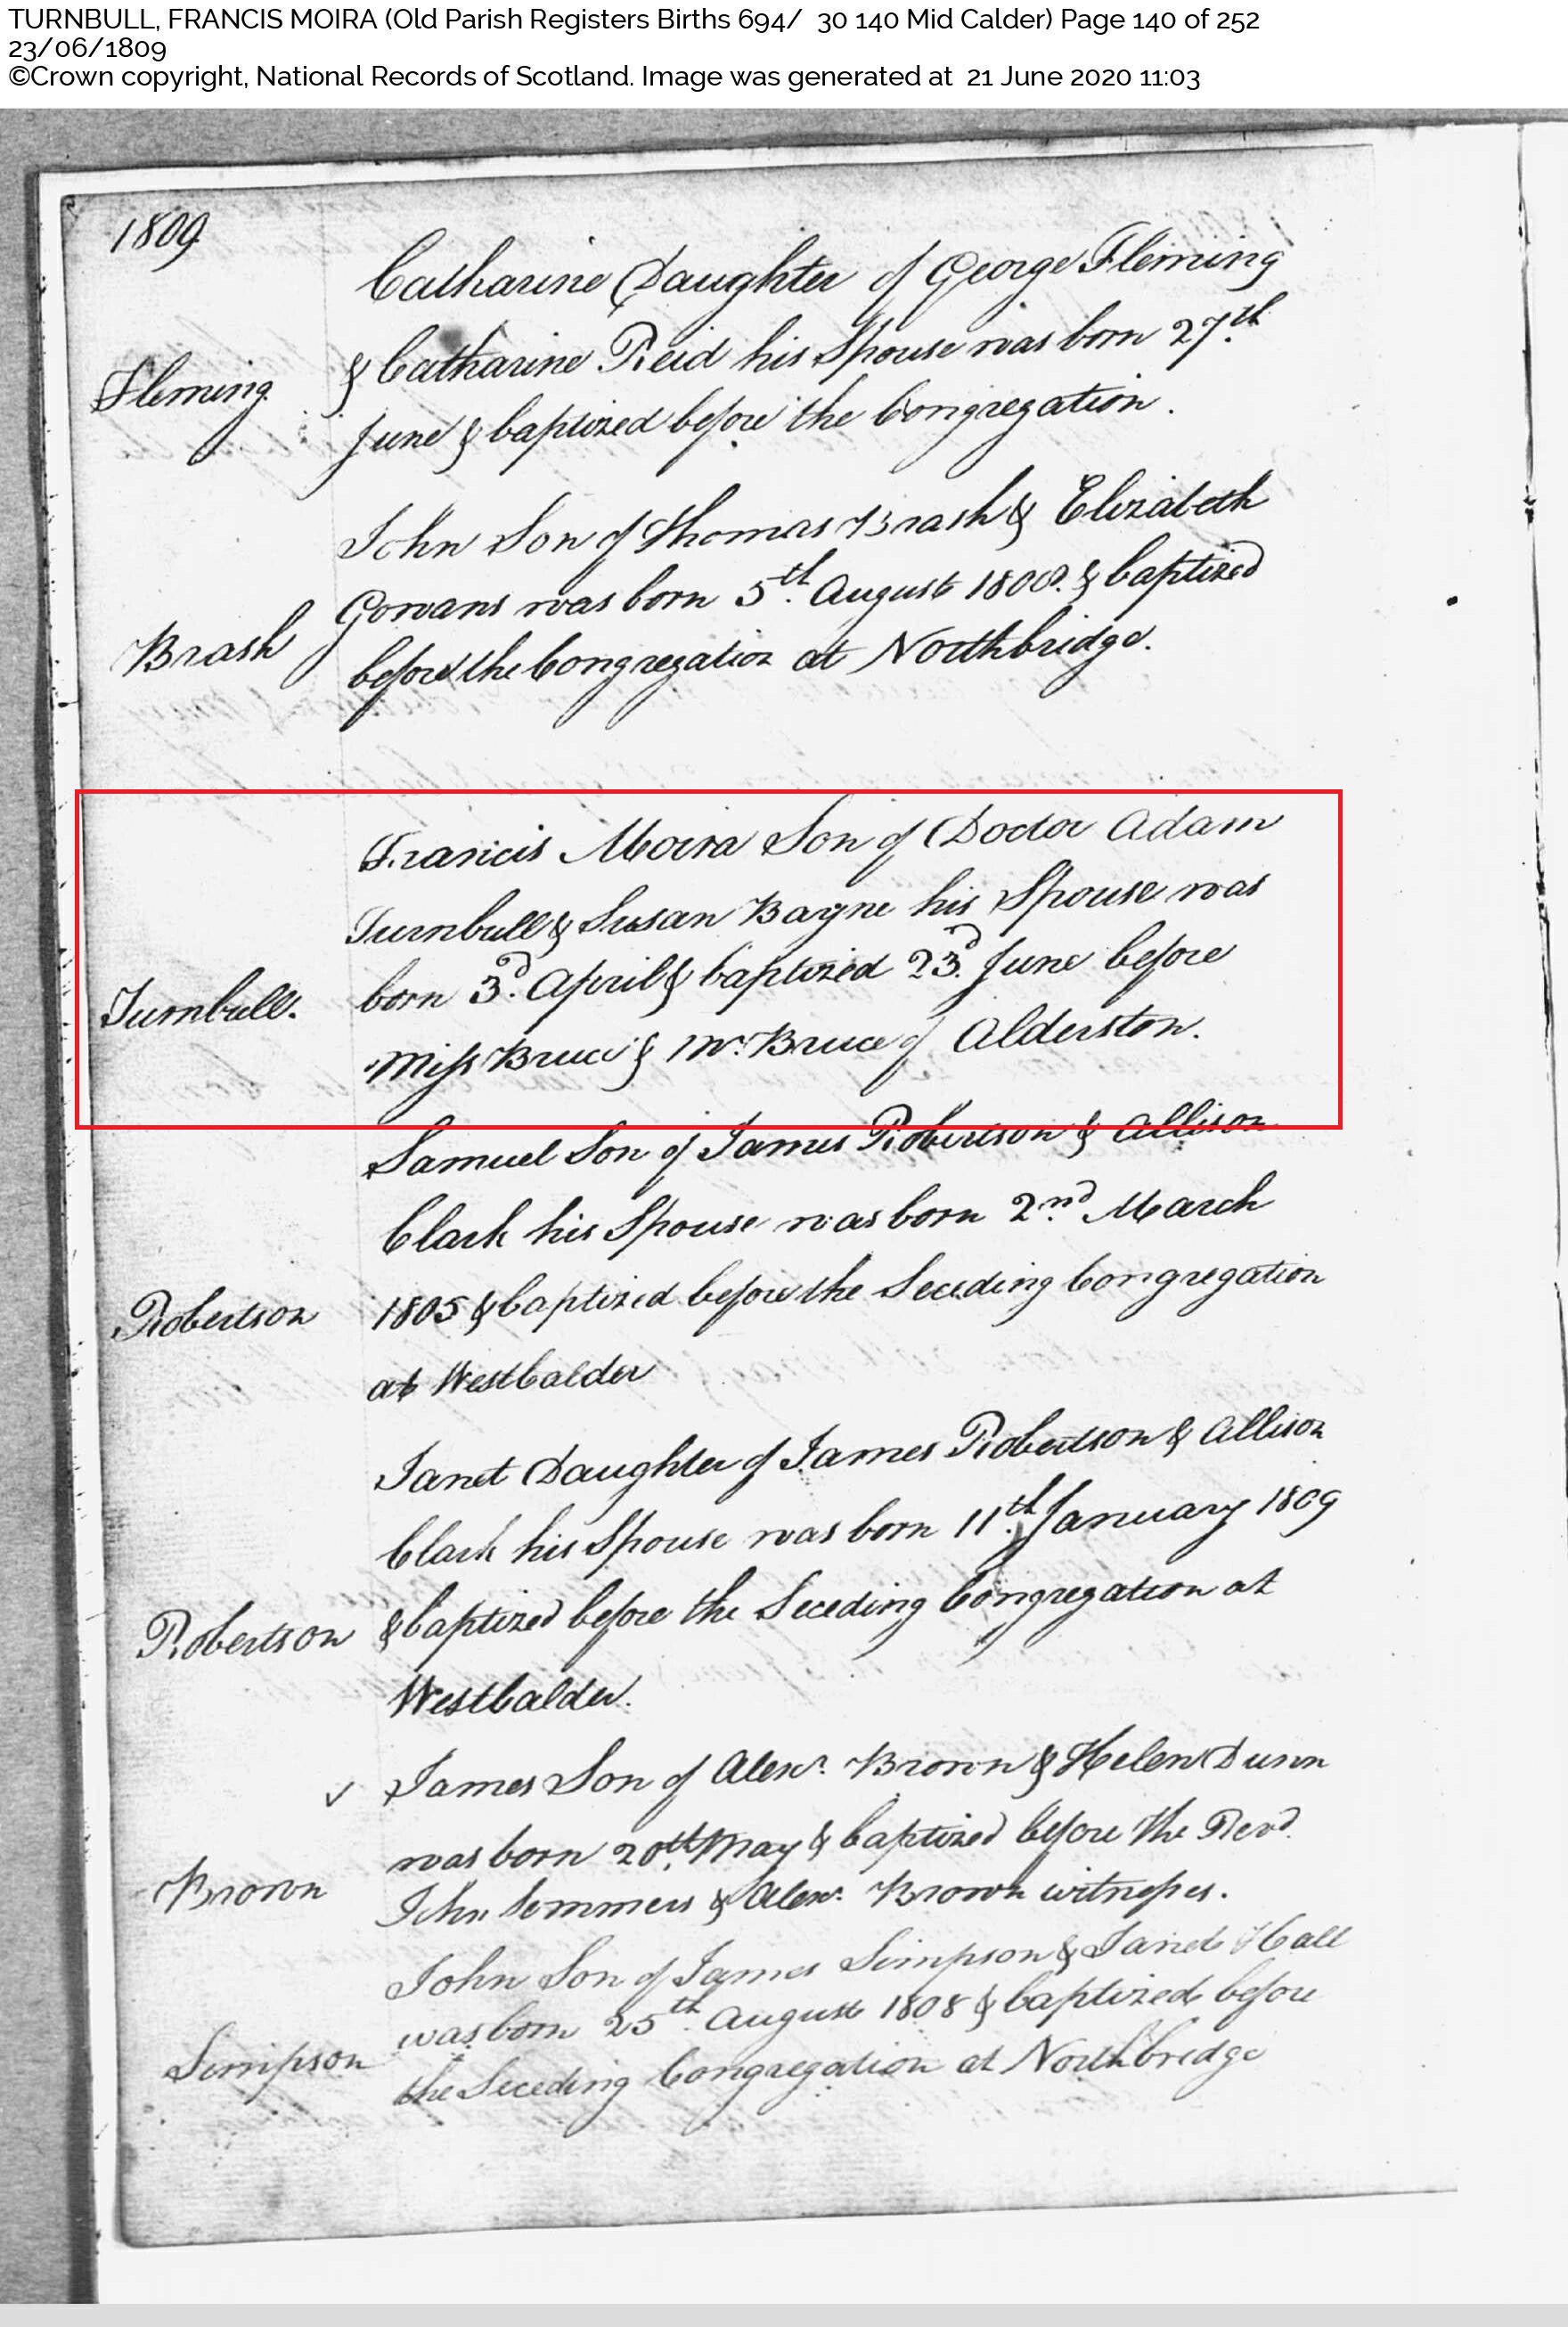 TURNBULL, FRANCIS MOIRA (Old Parish Registers Births 694/ 30 140 Mid Calder) Page 140 of 252
23/06/1809
©Crown copyright, National Records of Scotland. Image was generated at 21 June 2020 11:03
1809
Catharine Daughter of George Fleming
Fleming & Catharine Reid his Spouse was born 27th
June & baptized before the Congregation.
John Son of Thomas Brash & Elizabeth
Gowans was born 5th August 1808. & baptized
Brash before the Congregation at Northbridge.
Francis Moira Son of Doctor Adam
Turnbull & Susan Bayne his Spouse was
Turnbull. born 3d. April & baptized 23d. June before
Miss Bruce & Mr. Bruce of Alderston.
Samuel Son of James Robertson & Allison
Clark his Spouse was born 2nd March
Robertson 1805 & baptized before the Seceding Congregation
at West Calder
Janet Daughter of James Robertson & Allison
Clark his Spouse was born 11th January 1809
Robertson & baptized before the Seceding Congregation at
West Calder.
James Son of Alexr. Brown & Helen Dunn
was born 20th May & baptized before the Revd.
Brown John Sommers & Alexr. Brown witnesses.
John Son of James Simpson & Janet Hall
was born 25th August 1808 & baptized before
Simpson the Seceding Congregation at Northbridge